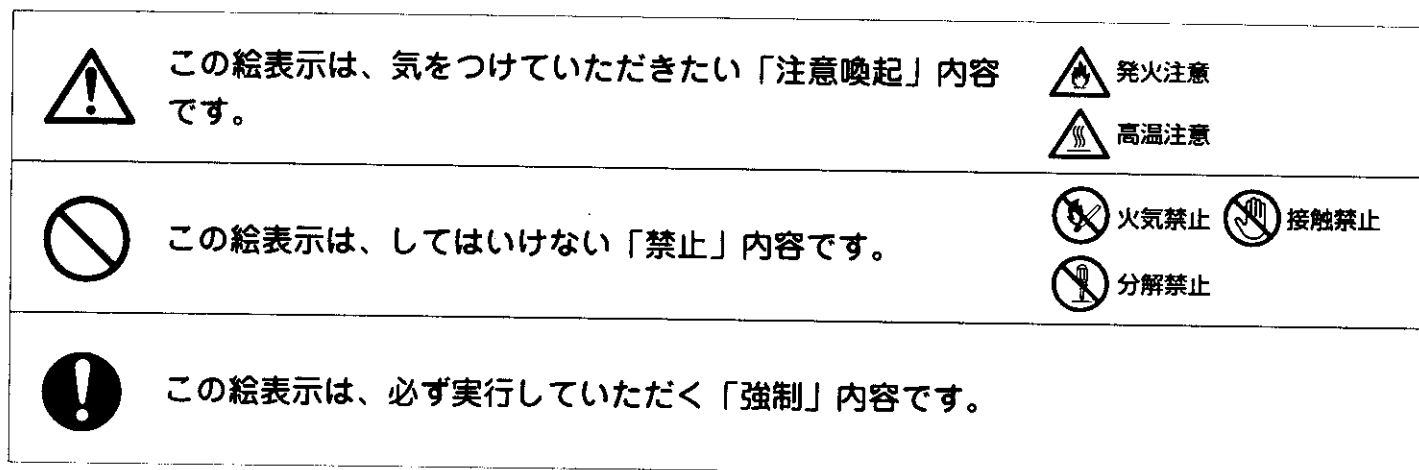 この絵表示は、気をつけていただきたい「注意喚起」内容
です。
発火注意
高温注意
この絵表示は、してはいけない「禁止」内容です。
火気禁止 接触禁止
分解禁止
この絵表示は、必ず実行していただく「強制」内容です。